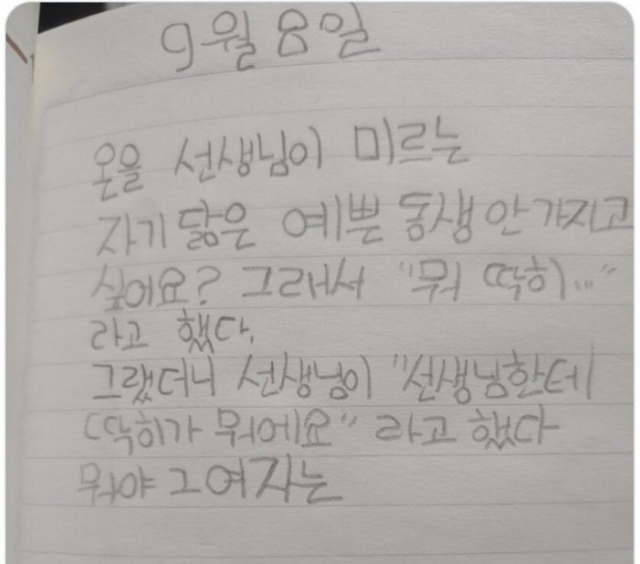 9월 8일
온을 선생님이 미르는
자기 닮은 예쁜 동생 안 가지고
싶어요? 그래서 "뭐 딱히..."
라고 했다.
그랬더니 선생님이 "선생님한테
딱히가 뭐에요" 라고 했다
뭐야 그 여자는